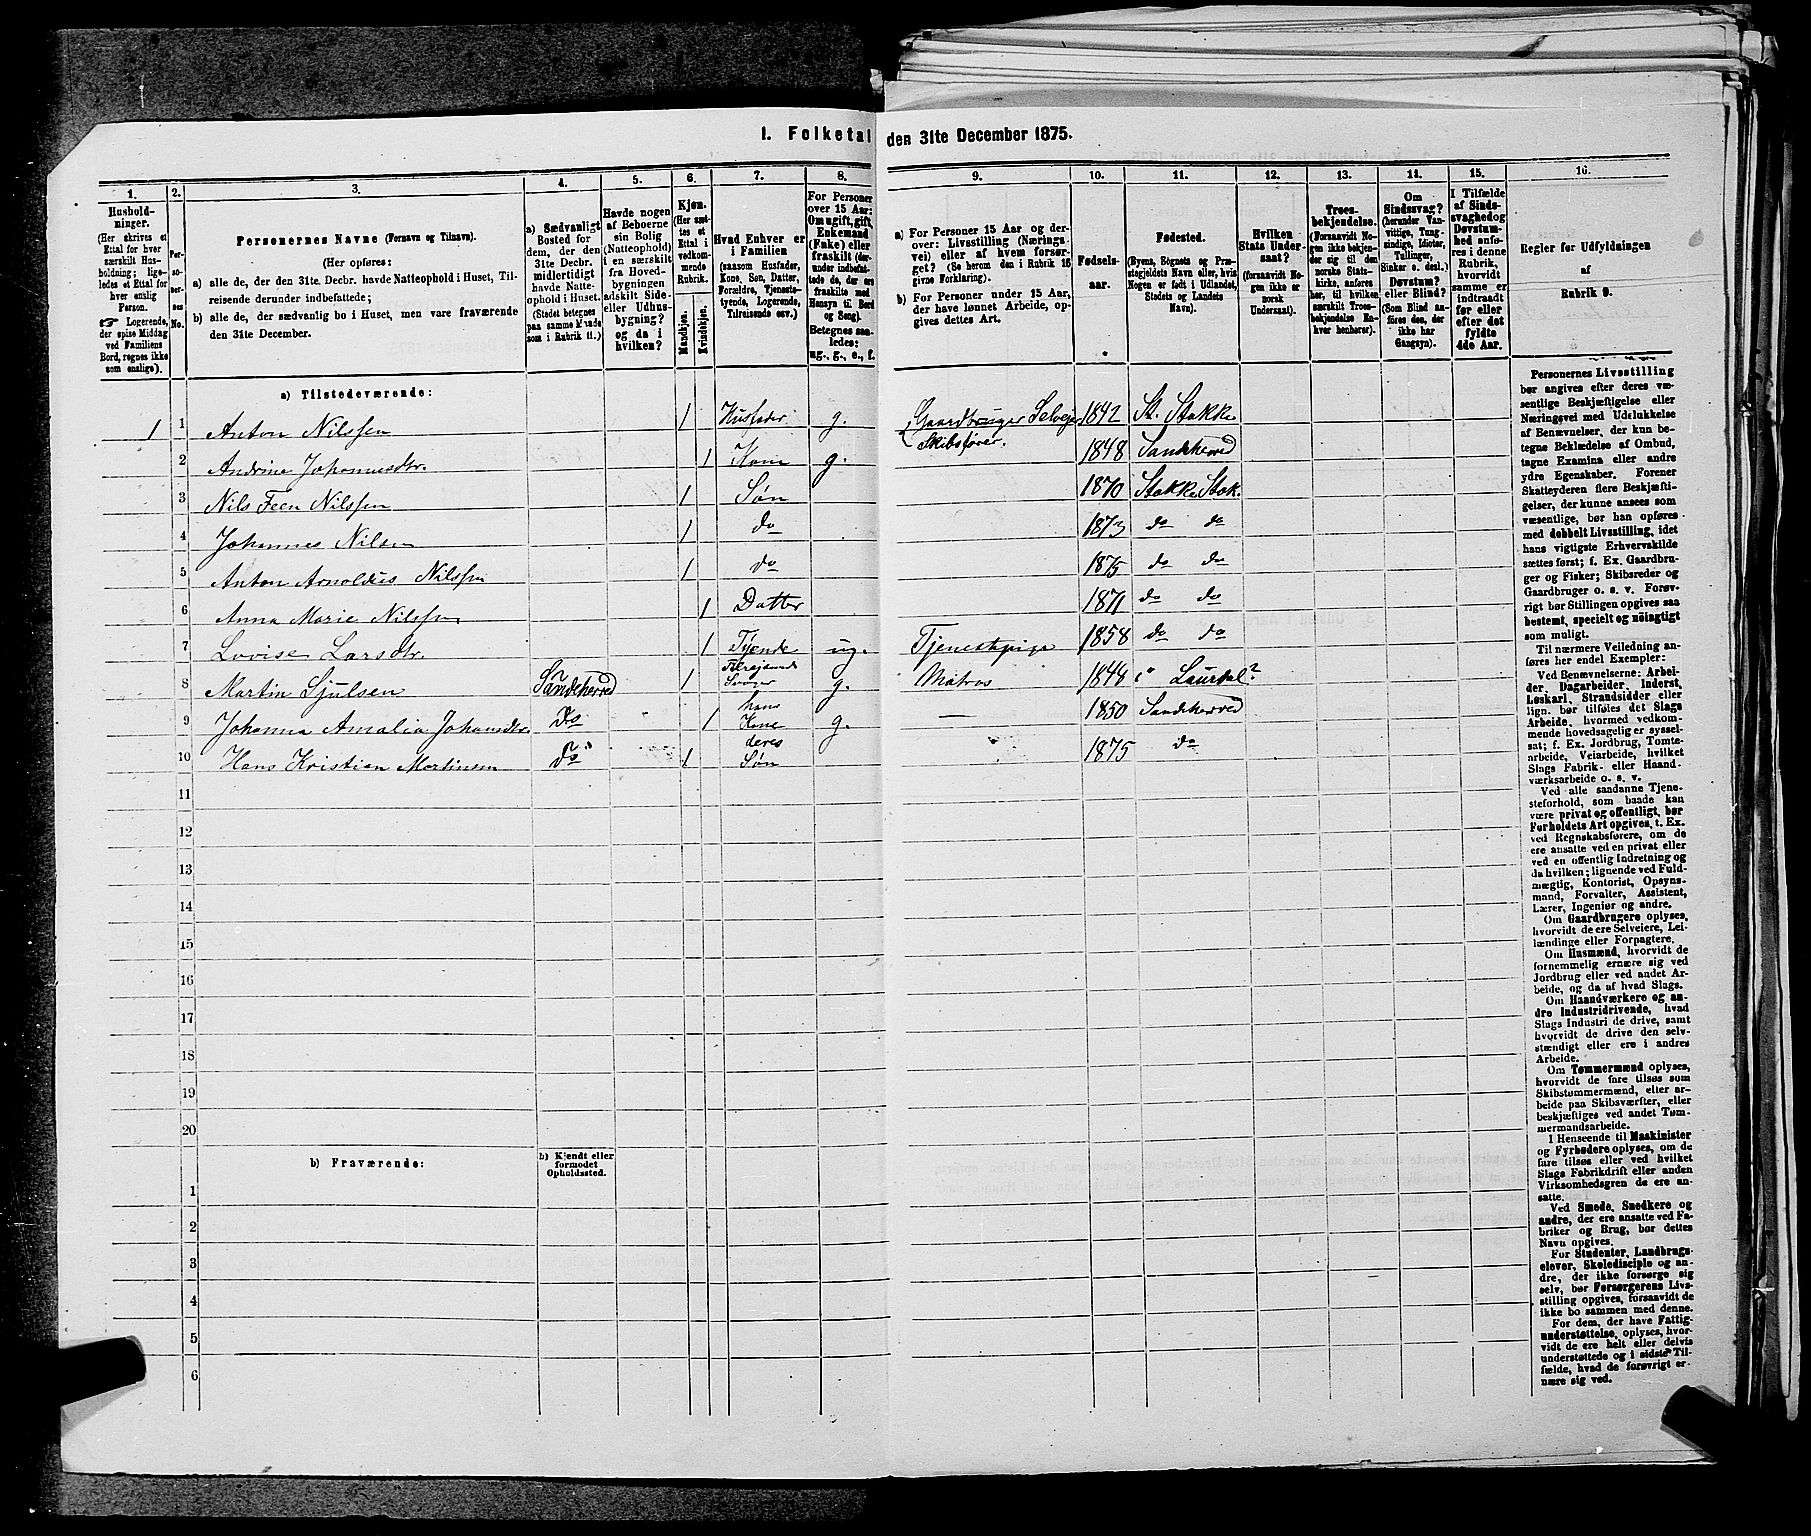 I. Folketal den 31te December 1875.
1. 2. 3. 4. 5. 6. 7. 8. 9. 10. 11. 12. 13. 14. 15. 16.
Husholdninger.
(Her skrives et Ettal for hver særskilt Husholdning; ligeledes et Ettal for hver enslig Person.
☞ Logerende, der spise Middag ved Familiens Bord, regnes ikke som enslige).
Personernes No.
Personernes Navne (Fornavn og Tilnavn).
(Her opføres:
a) alle de, der den 31te. Decbr. havde Natteophold i Huset, Tilreisende derunder indbefattede;
b) alle de, der sædvanlig bo i Huset, men vare fraværende den 31te December.
a) Sædvanligt Bosted for dem, der den 31te Decbr. midlertidigt havde Natteophold i Huset. (Stedet betegnes paa samme Maade som i Rubrik 11.)
Havde nogen af Beboerne sin Bolig (Natteophold) i en særskilt fra Hovedbygningen adskilt Side- eller Udhusbygning? og da i hvilken?
Kjøn. (Her sættes et Ettal i vedkommende Rubrik.
Mandkjøn. Kvindekjøn.
Hvad Enhver er i Familien (saasom Husfader, Kone, Søn, Datter, Forældre, Tjenestetyende, Logerende, Tilreisende osv.)
For Personer over 15 Aar: Om ugift, gift, Enkemand (Enke) eller fraskilt (derunder indbefattede de, der ere fraskilte med Hensyn til Bord og Seng). Betegnes saaledes: ug., g., e., f.
a) For Personer 15 Aar og derover: Livsstilling (Næringsvei) eller af hvem forsørget? (Se herom den i Rubrik 16 givne Forklaring).
b) For Personer under 15 Aar, der have lønnet Arbeide, opgives dettes Art.
Fødselsaar.
Fødested. (Byens, Sognets og Præstegjeldets Navn eller, hvis Nogen er født i Udlandet, Stedets og Landets Navn).
Hvilken Stats Undersaat? (forsaavidt Nogen ikke er norsk Undersaat).
Troesbekjendelse. (Forsaavidt Nogen ikke bekjender sig til den norske Statskirke, anføres her, til hvilken særskilt Troesbekjendelse Enhver henhører).
Om Sindssvag? (herunder Vanvittige, Tungsindige, Idioter, Tullinger, Sinker o. desl.) Døvstum? eller Blind? (Som Blind anføres den, der ikke har Gangsyn).
I Tilfælde af Sindssvaghed og Døvstumhed anføres i denne Rubrik, hvorvidt samme er indtraadt før eller efter det fyldte 4de Aar.
Regler før Udfyldningen af Rubrik 9.
a) Tilstedeværende:
1 1 Anton Nilssen 1 Husfader g. Gaardbruger Selveier Skibsfører. 1842 St. Stokke
2 Andrine Johannesdtr. 1 Kone g. 1848 Sandeherred
3 Nils Feen Nilssen 1 Søn 1870 Stokke Stok.
4 Johannes Nilsen 1 do 1873 do do
5 Anton Arnoldus Nilssen 1 do 1875 do do
6 Anna Marie Nilssen 1 Datter 1871 do do
7 Lovise Larsdtr. 1 Tjende ug. Tjenestepige 1858 do do
8 Martin Sjulsen Sandeherred 1 Tilrejsende Svoger g. Matros 1848 Laurkal?
9 Johanna Amalia Johansdtr. do 1 hans Kone g. — 1850 Sandeherred
10 Hans Kristian Martinsen do 1 deres Søn 1875 do
11
12
13
14
15
16
17
18
19
20
b) Fraværende:
b) Kjendt eller formodet Opholdssted.
1
2
3
4
5
6
Personernes Livsstilling
bør angives efter deres væ-
sentlige Beskjæftigelse eller
Næringsvei med Udelukkelse
af Benævnelser, der kun be-
tegne Beklædelse af Ombud,
tagne Examina eller andre
ydre Egenskaber. Forener
Skatteyderen flere Beskjæfti-
gelser, der kunne ansees som
væsentlige, bør han opføres
med dobbelt Livsstilling, idet
hans vigtigste Erhvervskilde
sættes først; f. Ex. Gaardbru-
ger og Fisker; Skibsreder og
Gaardbruger o. s. v. Forøv-
rigt bør Stillingen opgives saa
bestemt, specielt og nøiagtigt
som muligt.
Til nærmere Veiledning an-
føres her endel Exempler:
Ved Benævnelserne: Arbei-
der, Dagarbeider, Inderst,
Løskarl, Strandsidder eller
lign. bør tilføies det Slags
Arbeide, hvormed vedkom-
mende hovedsagelig er syssel-
sat; f. Ex. Jordbrug, Tomte-
arbeide, Veiarbeide, hvilket
Slags Fabrik- eller Haand-
værksarbeide o. s. v.
Ved alle saadanne Tjene-
steforhold, som baade kan
være privat og offentligt, bør
Forholdets Art opgives, t. Ex.
ved Regnskabsførere, om de
ere ansatte ved en privat eller
ved en offentlig Indretning og
da hvilken; lignende ved Fuld-
mægtig, Kontorist, Opsyns-
mand, Forvalter, Assistent,
Lærer, Ingeniør og andre.
Om Gaardbrugere oplyses,
hvorvidt de ere Selveiere, Lei-
lændinge eller Forpagtere.
Om Husmænd, hvorvidt de
fornemmelig ernære sig ved
Jordbrug eller ved andet Ar-
beide, og da af hvad Slags.
Om Haandværkere og an-
dre Industridrivende, hvad
Slags Industri de drive, samt
hvorvidt de drive den selv-
stændigt eller ere i andres
Arbeide.
Om Tømmermænd oplyses,
hvorvidt de fare tilsøs som
Skibstømmermænd, eller ar-
beide paa Skibsværfter, eller
beskjæftiges ved andet Tøm-
mermandsarbeide.
I Henseende til Maskinister
og Fyrbødere oplyses, om de
fare tilsøs eller ved hvilket
Slags Fabrikdrift eller anden
Virksomhedsgren de ere an-
satte.
Ved Smede, Snedkere og
andre, der ere ansatte ved Fa-
briker og Brug, bør dettes
Navn opgives.
For Studenter, Landbrugs-
elever, Skoledisciple og an-
dre, der ikke forsørge sig
selv, bør Forsørgerens Livs-
stilling opgives, forsaavidt de
ikke bo sammen med denne.
For dem, der have Fattig-
understøttelse, oplyses, hvor-
vidt de ere helt eller delvis
understøttede og i sidste Til-
fælde, hvad de forøvrigt er-
nære sig ved.